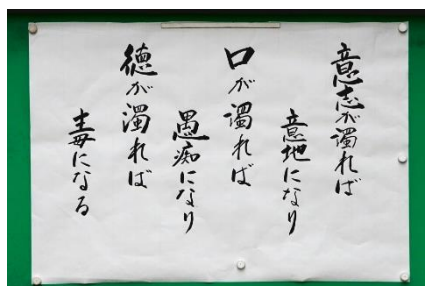 意志が濁れば
意地になり
口が濁れば
愚痴になり
徳が濁れば
毒になる